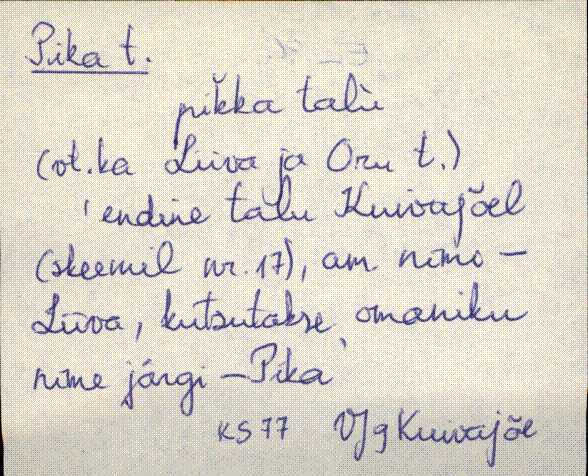 Pika t.
pìkka talù
(vt. ka Liiva ja Oru t.)
'endine talu Kuivajõel
(skeemil nr. 17), am. nimo –
Liiva, kutsutakse omaniku
nime järgi – Pika'
KS 77 VJg Kuivajõe